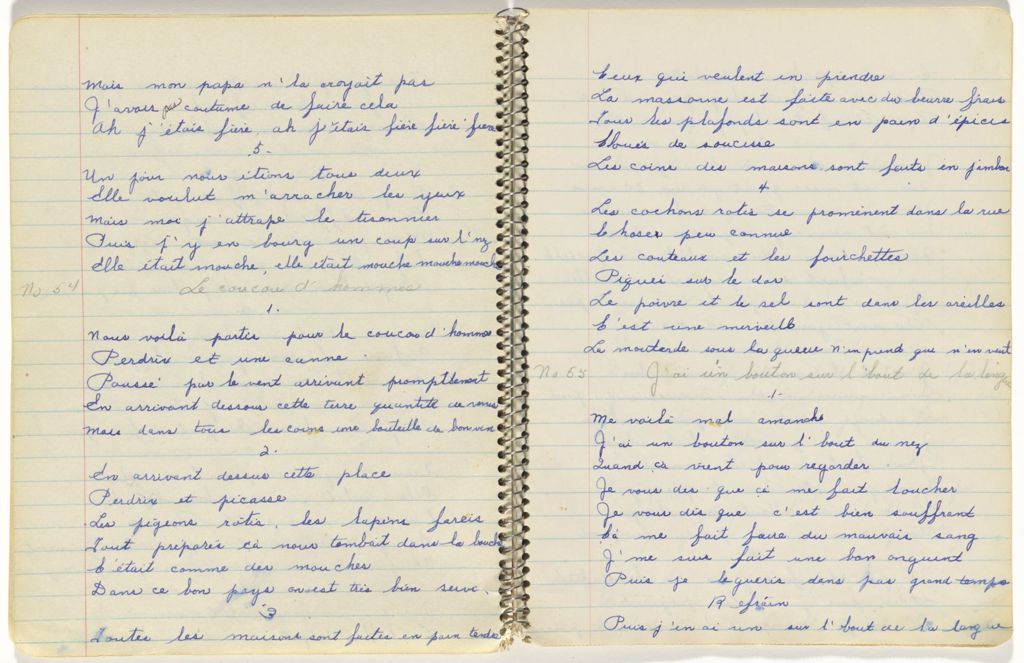 Mais mon papa n'la croyait pas
J'avais pas coutume de faire cela
Ah j'étais fière, ah j'étais fière fière fière
5-
Un jour nous étions tous deux
Elle voulut m'arracher les yeux
Mais moi j'attrape le tisonnier
Puis j'y en bourg un coup sur l'nez
Elle était mouche, elle était mouche mouche mouche
No 54 Le coucou d'hommes
1.
Nous voilà partis pour le coucou d'homme
Perdrix et une canne
Poussé par le vent arrivant promptlement
En arrivant dessous cette terre quantité de
Mais dans tous les coins une bouteille de bon ven
2.
En arrivant dessus cette place
Perdrix et picasse
Les pigeons rotis, les lapins farcis
Tout préparés cà nous tombait dans la bouche
C'était comme des mouches
Dans ce bon pays on est très bien servi.
3
Toutes les maisons sont faites en pain tendre
Ceux qui veulent en prendre
La massonne est faite avec du beurre frais
Tous les plafonds sont en pain d'épices
Cloués de soucisse
Les coins des maisons sont faits en jambon
4
Les cochons rotis se promènent dans la rue
Choses peu connue
Les couteaux et les fourchettes
Piqués sur le dos
Le poivre et le sel sont dans les oreilles
C'est une merveille
La moutarde sous la queue n'en prend qui n'en veut
No 55 J'ai un bouton sur l'bout de la langue
1-
Me voilà mal amanché
J'ai un bouton sur l'bout du nez
Quand cà vient pour regarder
Je vous dis que cà me fait loucher
Je vous dis que c'est bien souffrant
Cà me fait faire du mauvais sang
J'me suis fait une bon onguent
Puis je leguéris dans pas grand temps
Refrain
Puis j'en ai un sur l'bout de la langue